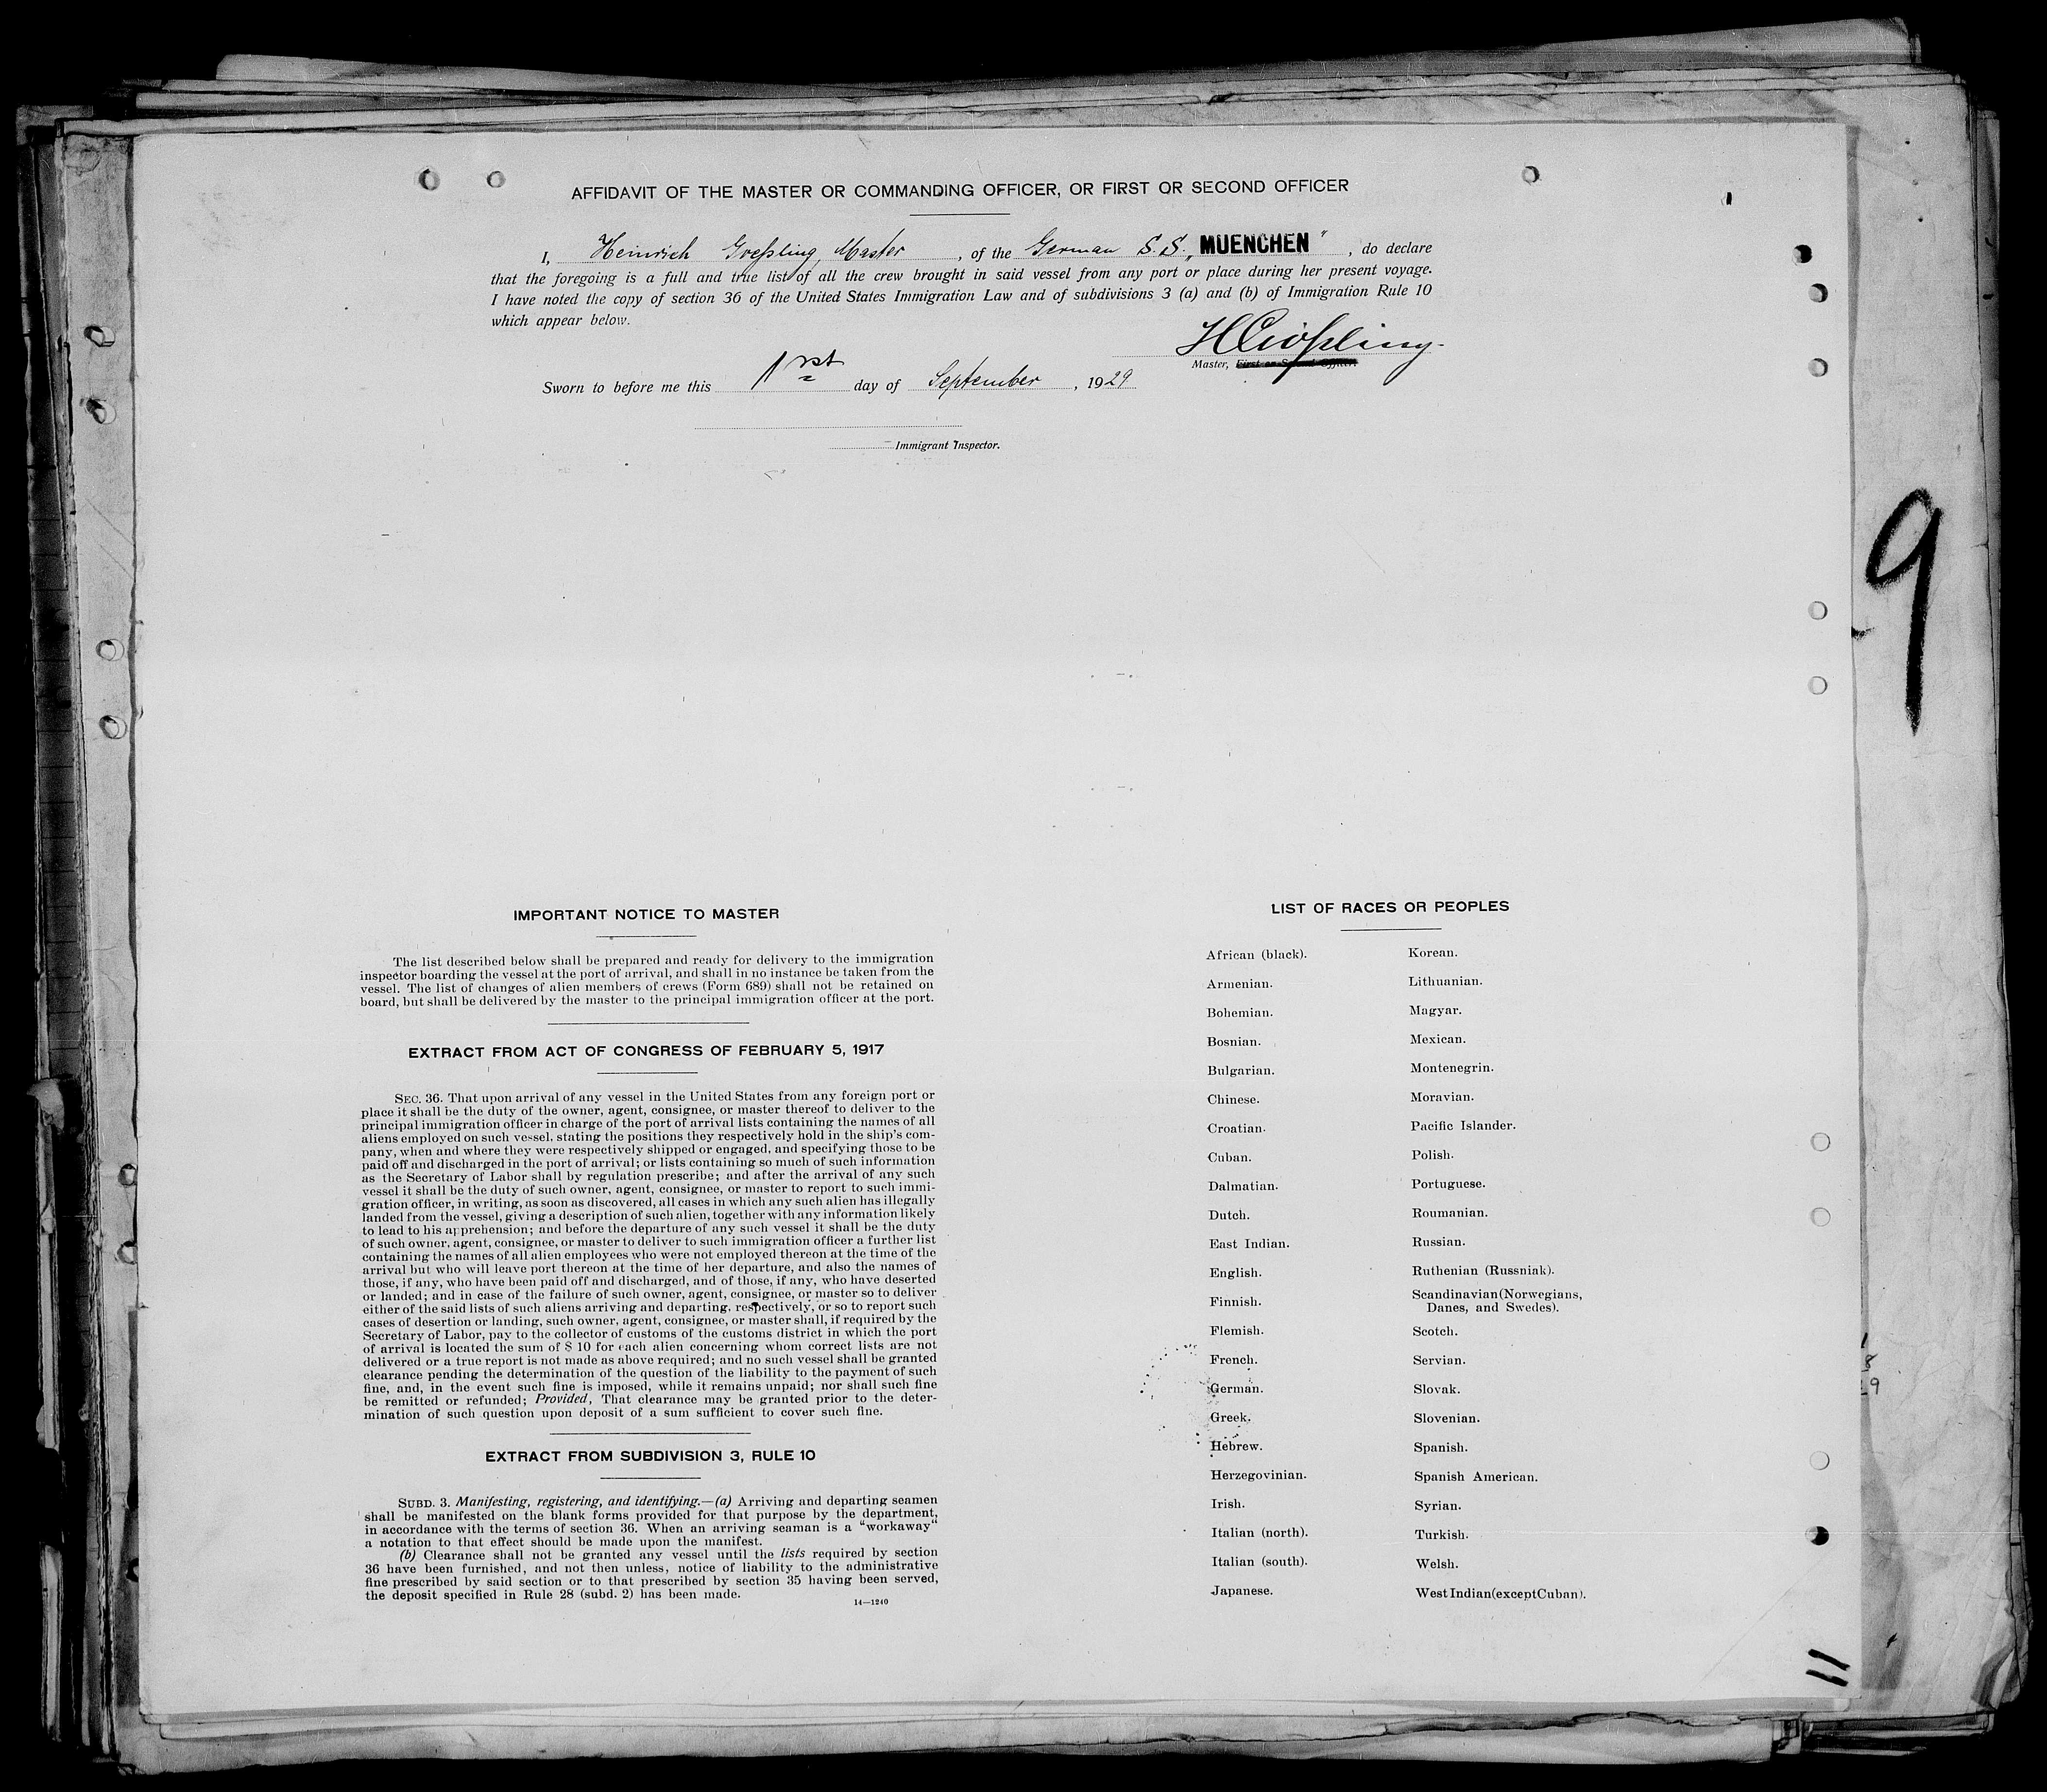 AFFIDAVIT OF THE MASTER OR COMMANDING OFFICER, OR FIRST OR SECOND OFFICER
I, Heinrich Greßling, Master, of the German S.S. „MUENCHEN", do declare
that the foregoing is a full and true list of all the crew brought in said vessel from any port or place during her present voyage.
I have noted the copy of section 36 of the United States Immigration Law and of subdivisions 3 (a) and (b) of Immigration Rule 10
which appear below.
Master, First or Second Officer.
Sworn to before me this 1rst day of September, 1929
Immigrant Inspector.
9
IMPORTANT NOTICE TO MASTER
The list described below shall be prepared and ready for delivery to the immigration
inspector boarding the vessel at the port of arrival, and shall in no instance be taken from the
vessel. The list of changes of alien members of crews (Form 689) shall not be retained on
board, but shall be delivered by the master to the principal immigration officer at the port.
EXTRACT FROM ACT OF CONGRESS OF FEBRUARY 5, 1917
SEC. 36. That upon arrival of any vessel in the United States from any foreign port or
place it shall be the duty of the owner, agent, consignee, or master thereof to deliver to the
principal immigration officer in charge of the port of arrival lists containing the names of all
aliens employed on such vessel. stating the positions they respectively hold in the ship's com-
pany, when and where they were respectively shipped or engaged, and specifying those to be
paid off and discharged in the port of arrival; or lists containing so much of such information
as the Secretary of Labor shall by regulation prescribe; and after the arrival of any such
vessel it shall be the duty of such owner, agent, consignee, or master to report to such immi-
gration officer, in writing, as soon as discovered, all cases in which any such alien has illegally
landed from the vessel, giving a description of such alien, together with any information likely
to lead to his apprehension; and before the departure of any such vessel it shall be the duty
of such owner, agent, consignee, or master to deliver to such immigration officer a further list
containing the names of all alien employees who were not employed thereon at the time of the
arrival but who will leave port thereon at the time of her departure, and also the names of
those, if any, who have been paid off and discharged, and of those, if any, who have deserted
or landed; and in case of the failure of such owner, agent, consignee, or master so to deliver
either of the said lists of such aliens arriving and departing, respectively, or so to report such
cases of desertion or landing, such owner, agent, consignee, or master shall, if required by the
Secretary of Labor, pay to the collector of customs of the customs district in which the port
of arrival is located the sum of $ 10 for each alien concerning whom correct lists are not
delivered or a true report is not made as above required; and no such vessel shall be granted
clearance pending the determination of the question of the liability to the payment of such
fine, and, in the event such fine is imposed, while it remains unpaid; nor shall such fine
be remitted or refunded; Provided, That clearance may be granted prior to the deter-
mination of such question upon deposit of a sum sufficient to cover such fine.
EXTRACT FROM SUBDIVISION 3, RULE 10
SUBD. 3. Manifesting, registering, and identifying.—(a) Arriving and departing seamen
shall be manifested on the blank forms provided for that purpose by the department,
in accordance with the terms of section 36. When an arriving seaman is a "workaway"
a notation to that effect should be made upon the manifest.
(b) Clearance shall not be granted any vessel until the lists required by section
36 have been furnished, and not then unless, notice of liability to the administrative
fine prescribed by said section or to that prescribed by section 35 having been served,
the deposit specified in Rule 28 (subd. 2) has been made.
14—1240
LIST OF RACES OR PEOPLES
African (black).
Armenian.
Bohemian.
Bosnian.
Bulgarian.
Chinese.
Croatian.
Cuban.
Dalmatian.
Dutch.
East Indian.
English.
Finnish.
Flemish.
French.
German.
Greek.
Hebrew.
Herzegovinian.
Irish.
Italian (north).
Italian (south).
Japanese.
Korean.
Lithuanian.
Magyar.
Mexican.
Montenegrin.
Moravian.
Pacific Islander.
Polish.
Portuguese.
Roumanian.
Russian.
Ruthenian (Russniak).
Scandinavian (Norwegians,
Danes, and Swedes).
Scotch.
Servian.
Slovak.
Slovenian.
Spanish.
Spanish American.
Syrian.
Turkish.
Welsh.
West Indian (except Cuban).